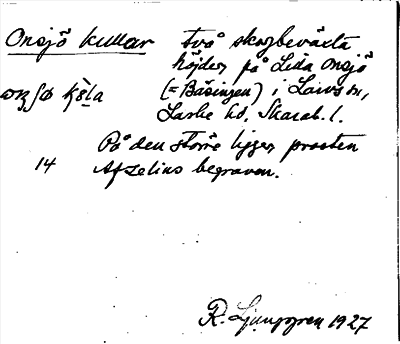 Onsjö kullar två skogbeväxta
höjder på Lida Onsjö
(= Båsingen) i Larvs sn,
Laske hd, Skarab. l.
På den större ligger prosten
14 Afzelius begraven.
R. Ljunggren 1927